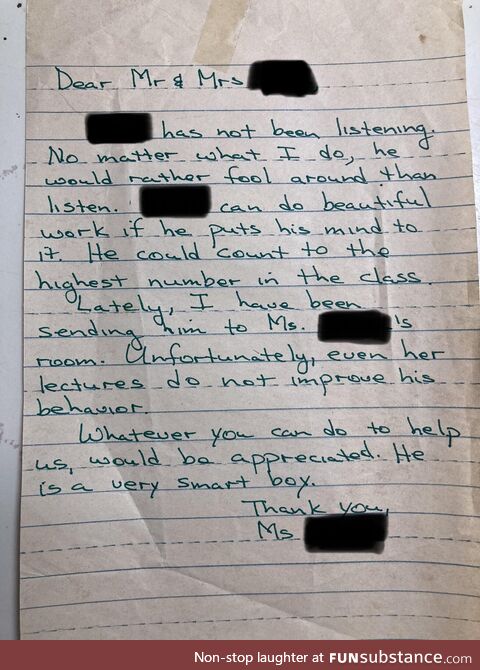 Dear Mr & Mrs
has not been listening.
No matter what I do, he
would rather fool around than
listen. can do beautiful
work if he puts his mind to
it. He could count to the
highest number in the class.
Lately, I have been
sending him to Ms. 's
room. Unfortunately, even her
lectures do not improve his
behavior.
Whatever you can do to help
us, would be appreciated. He
is a very smart boy.
Thank you,
Ms
Non-stop laughter at FUNsubstance.com